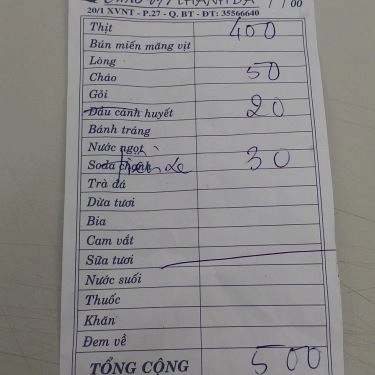 CHÁO VỊT THANH ĐA
20/1 XVNT - P.27 - Q. BT - ĐT: 35566640 / / 00
Thịt 400
Bún miến măng vịt
Lòng
Cháo 50
Gỏi
Đầu cánh huyết 20
Bánh tráng
Nước ngọt
Soda chanh 30
Trà đá
Dừa tươi
Bia
Cam vắt
Sữa tươi
Nước suối
Thuốc
Khăn
Đem về
TỔNG CỘNG 500